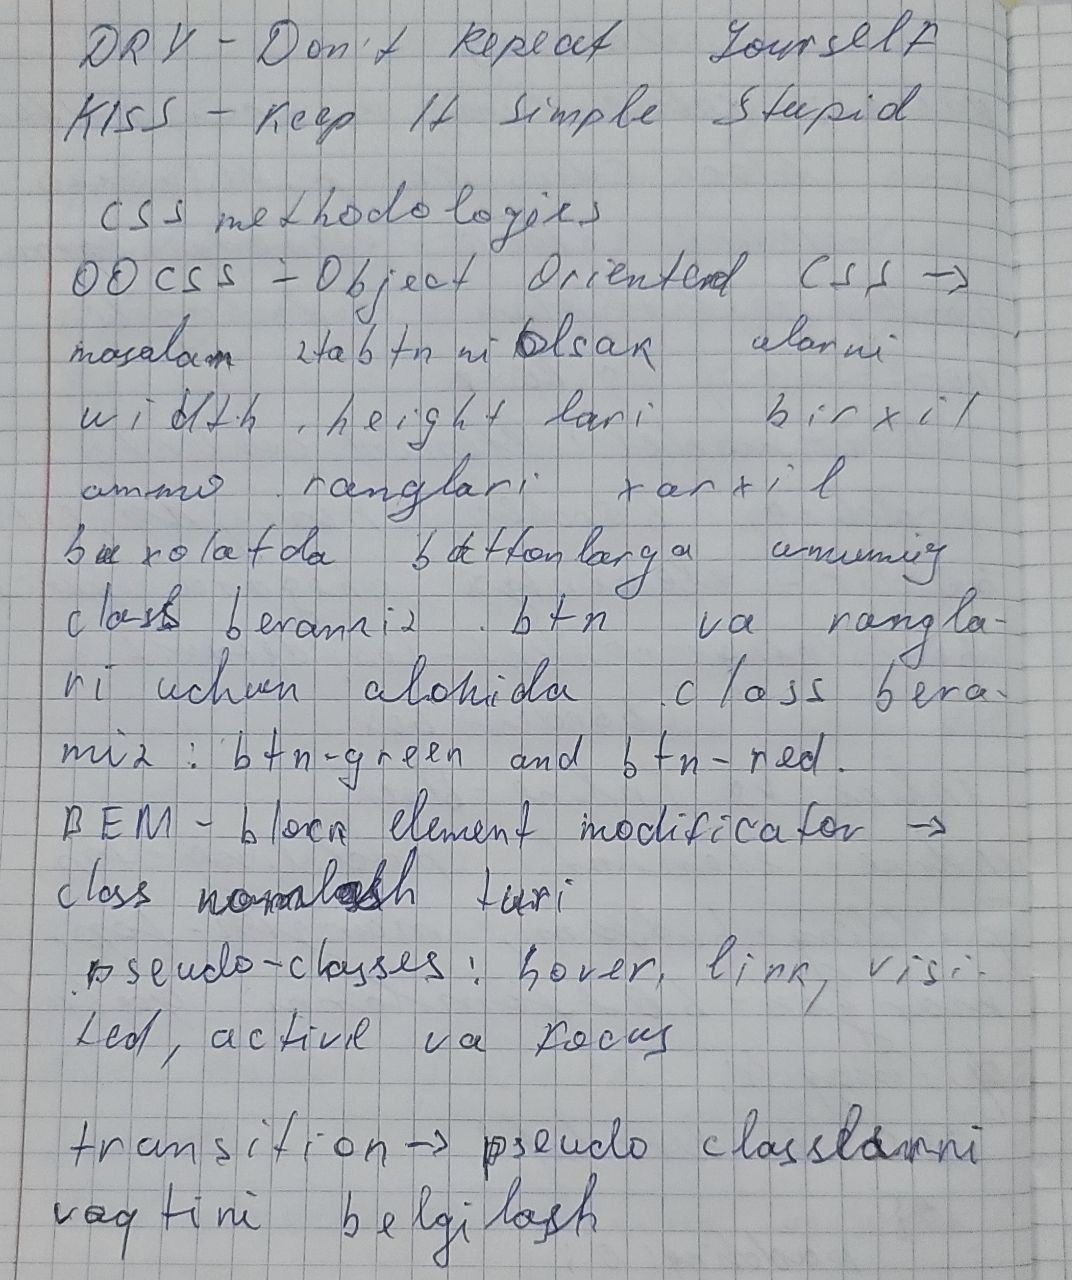 DRY - Don't Repeat Yourself
KISS - Keep It Simple Stupid
CSS methodologies
OOCSS - Object Oriented CSS →
masalan 2ta btn ni olsak ularni
width, height lari birxil
ammo ranglari xarxil
bu xolatda buttonlarga umumiy
class beramiz .btn va rangla-
ri uchun alohida .class bera-
miz : btn-green and btn-red.
BEM - block element modificator →
class nomlash turi
pseudo-classes: hover, link, visi-
ted, active va focus
transition → pseudo classlarni
vaqtini belgilash